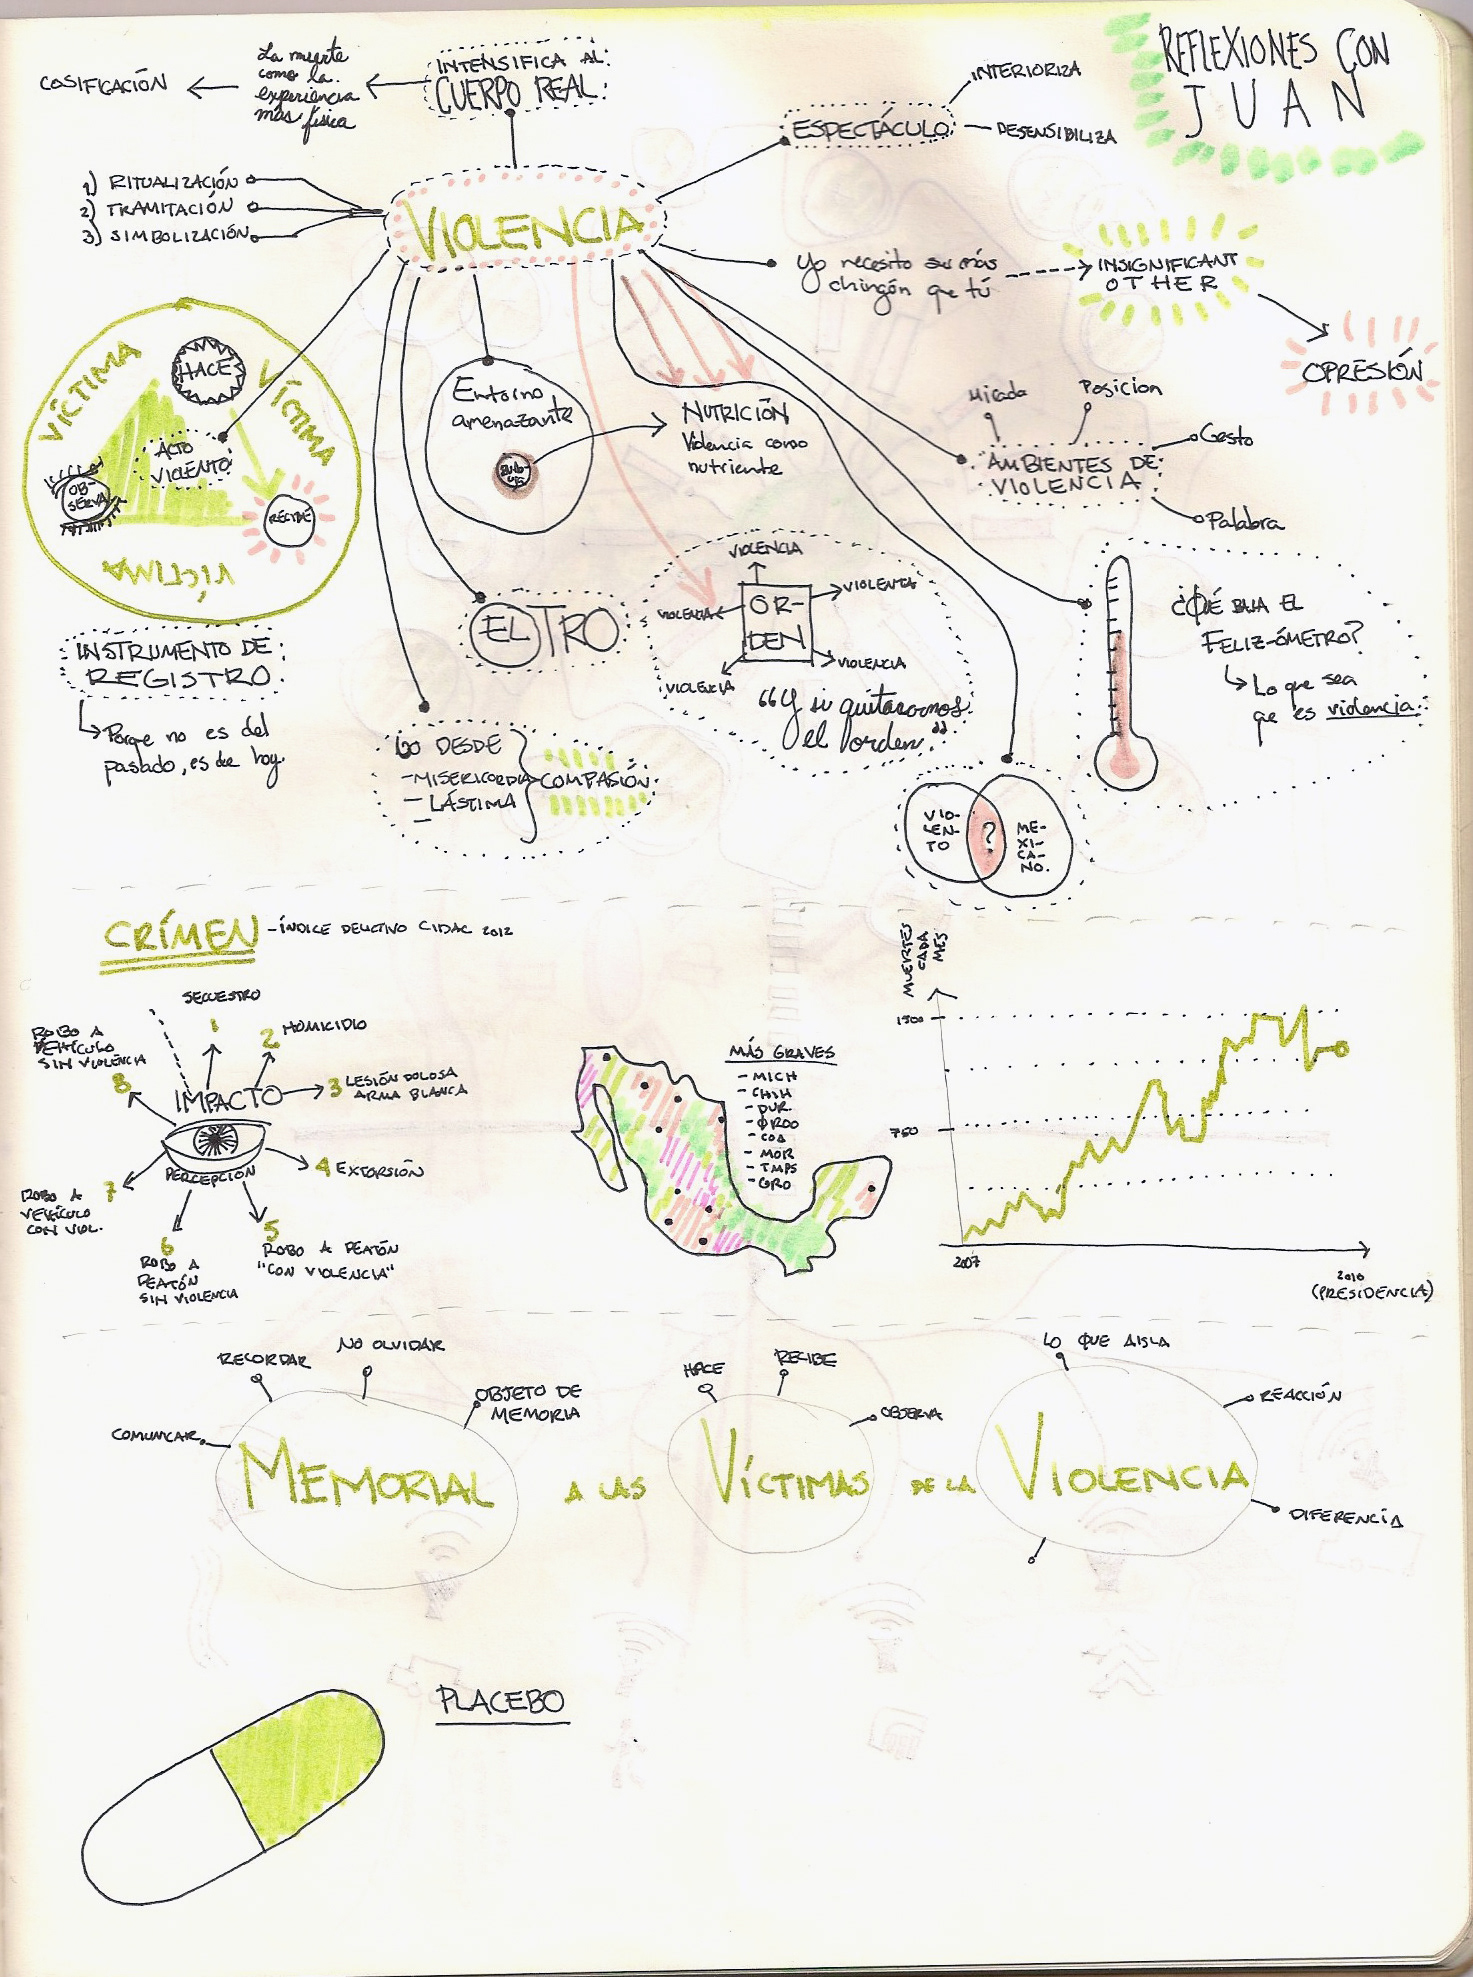 REFLEXIONES CON
JUAN
COSIFICACIÓN
La muerte
como la
experiencia
más física
INTENSIFICA AL
CUERPO REAL
INTERIORIZA
ESPECTÁCULO
DESENSIBILIZA
1) RITUALIZACIÓN
2) TRAMITACIÓN
3) SIMBOLIZACIÓN
VIOLENCIA
Yo necesito ser más
chingón que tú
INSIGNIFICANT
OTHER
OPRESIÓN
VÍCTIMA
HACE
VÍCTIMA
ACTO
VIOLENTO
OB-
SERVA
RECIBE
VÍCTIMA
Entorno
amenazante
NUTRICIÓN
Violencia como
nutriente
Mirada
Posicion
Gesto
AMBIENTES DE
VIOLENCIA
Palabra
INSTRUMENTO DE
REGISTRO
Porqe no es del
pasado, es de hoy.
EL TRO
VIOLENCIA
VIOLENTA
VIOLENCIA
OR-
DEN
VIOLENCIA
VIOLENCIA
"Y si quitaramos
el orden."
¿QUÉ BAJA EL
FELIZ-ÓMETRO?
Lo que sea
qe es violencia
DESDE
- MISERICORDIA
- LÁSTIMA
COMPASIÓN
VIO-
LEN-
TO
?
ME-
XI-
CA-
NO.
CRÍMEN
- ÍNDICE DELICTIVO CIDAC 2012
SECUESTRO
1
2 HOMICIDIO
3 LESIÓN DOLOSA
ARMA BLANCA
4 EXTORSIÓN
5
ROBO A PEATÓN
"CON VIOLENCIA"
6
ROBO A
PEATÓN
SIN VIOLENCIA
7
ROBO A
VEHÍCULO
CON VIOL.
8
ROBO A
VEHÍCULO
SIN VIOLENCIA
IMPACTO
PERCEPCIÓN
MÁS GRAVES
- MICH
- CHIH
- DUR.
- QROO
- COA
- MOR
- TMPS
- GRO
MUERTES
CADA
MES
1500
750
2007
2010
(PRESIDENCIA)
RECORDAR
NO OLVIDAR
OBJETO DE
MEMORIA
COMUNICAR
HACE
RECIBE
OBSERVA
LO QUE AISLA
REACCIÓN
DIFERENCIA
MEMORIAL A LAS VÍCTIMAS DE LA VIOLENCIA
PLACEBO